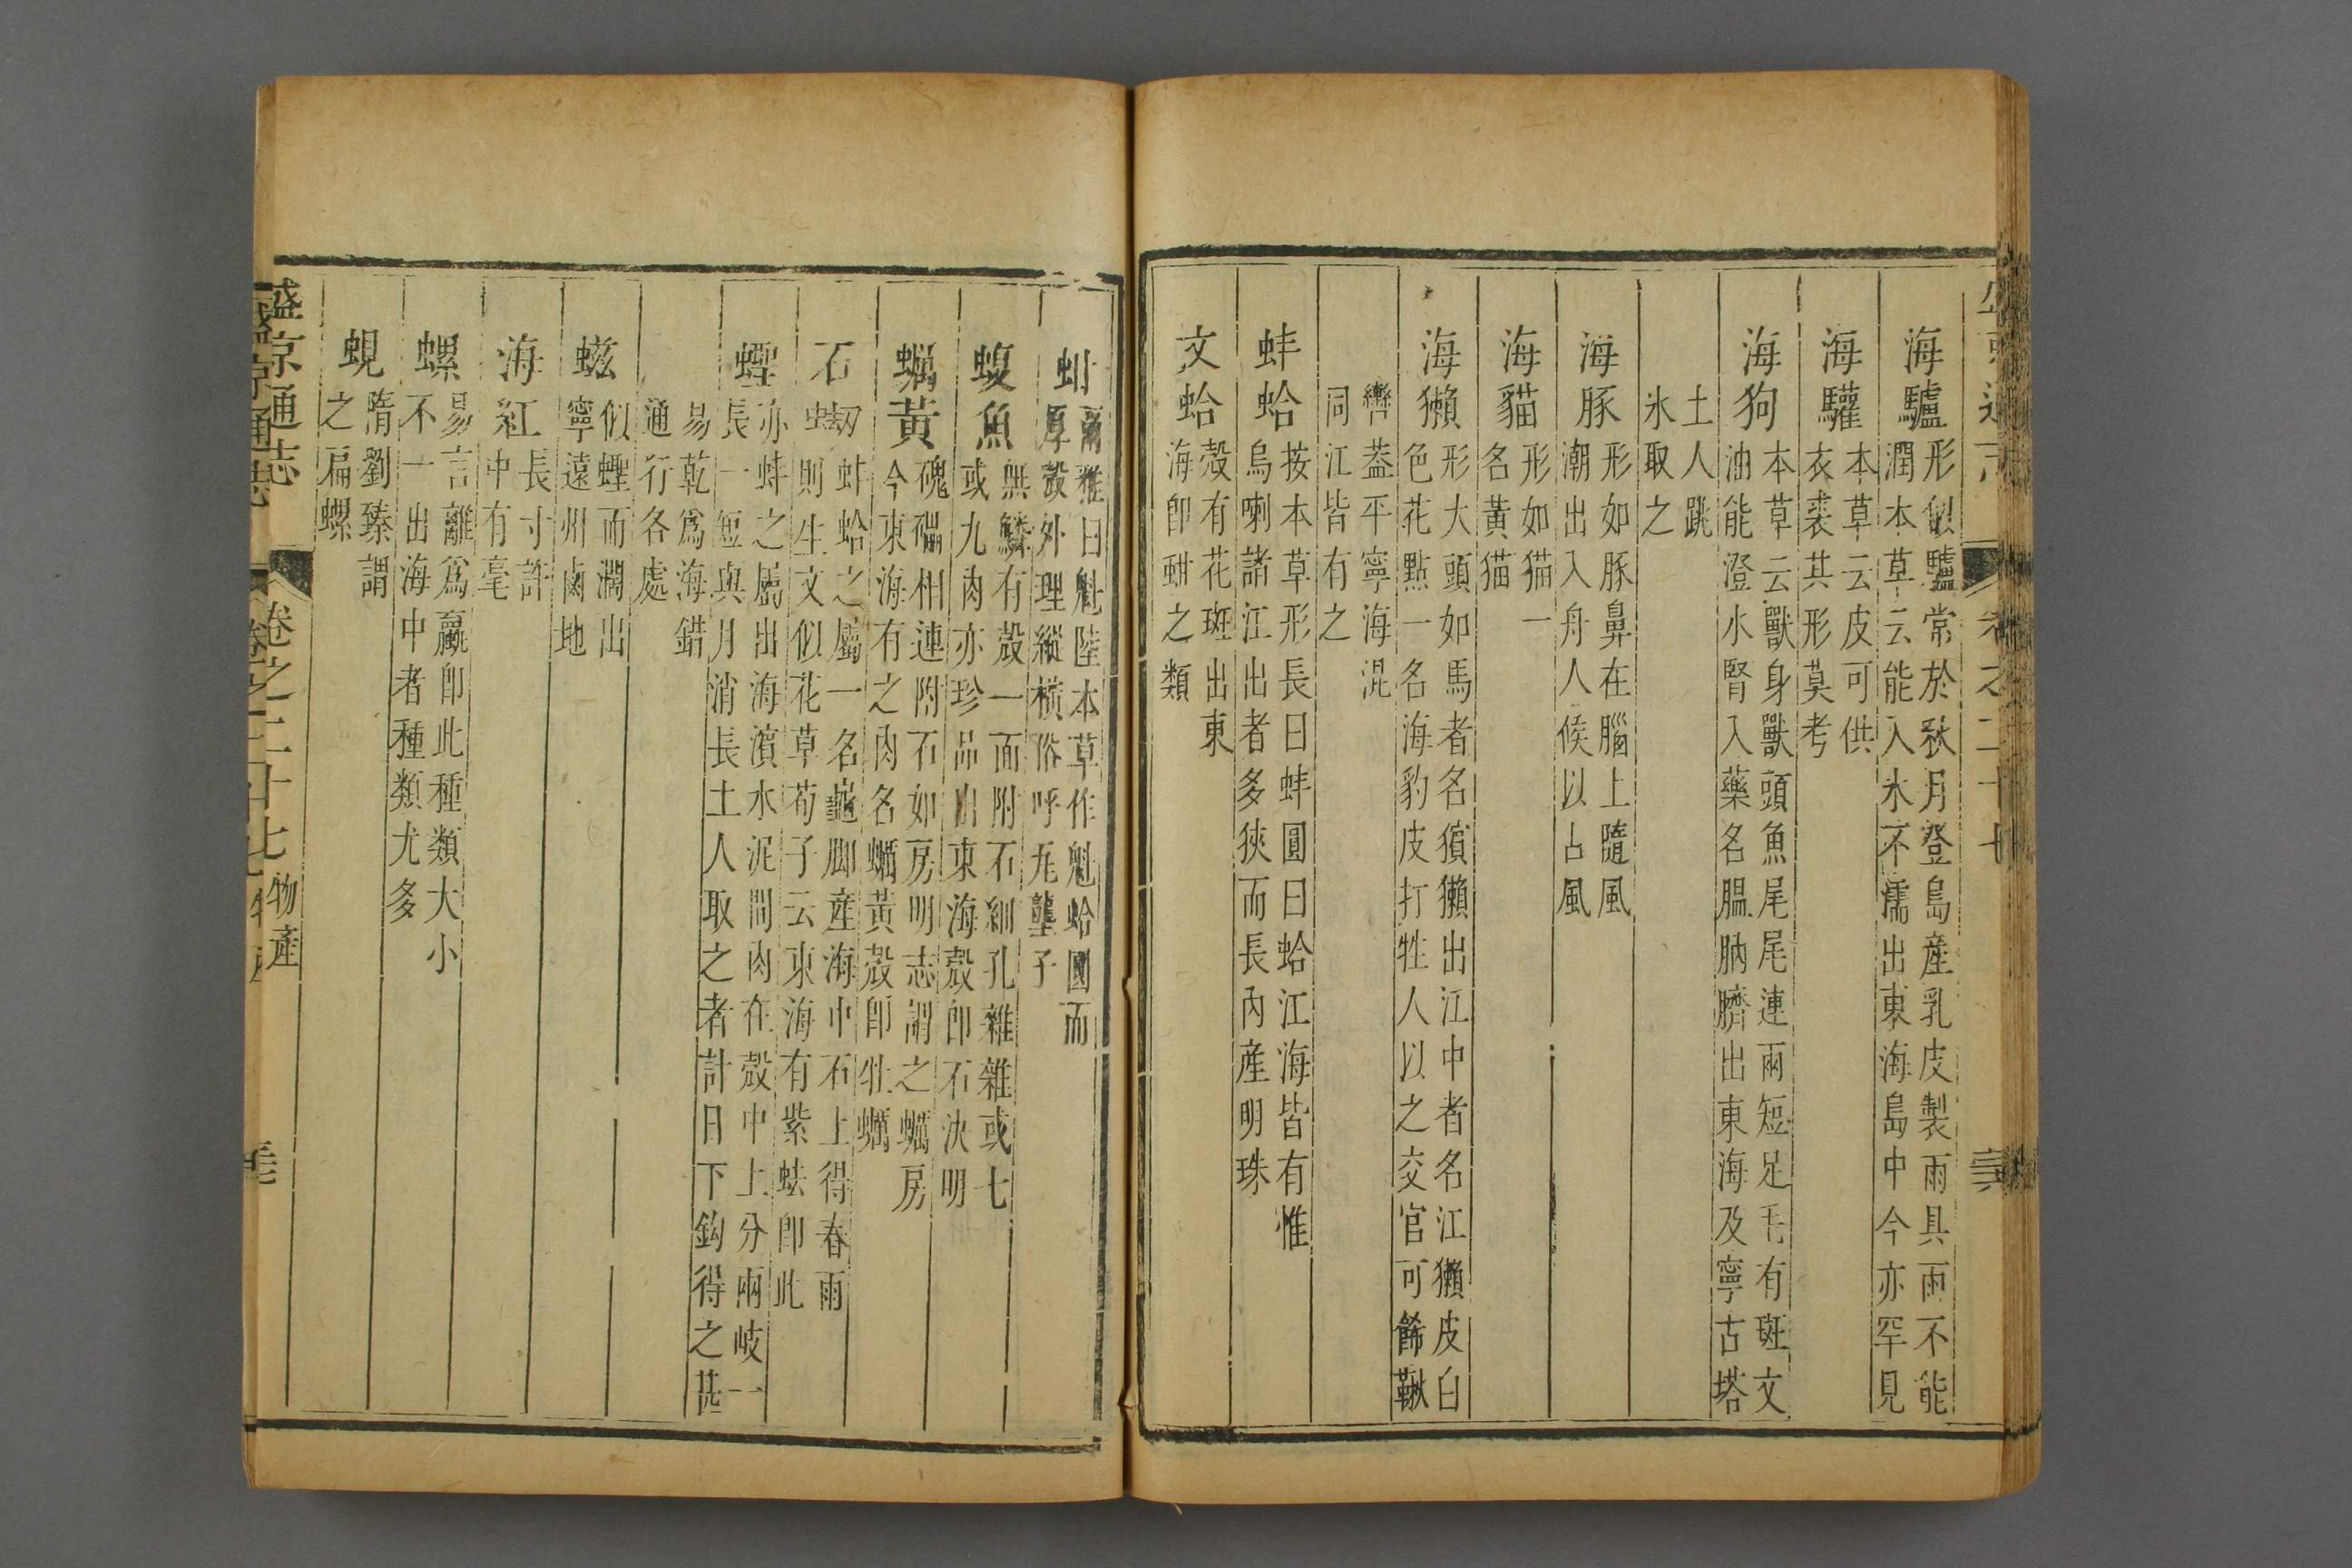 海驢形似驢常於秋月登島產乳皮製雨具雨不能
潤本草云能入水不濡出東海島中今亦罕見
海驩本草云皮可供
衣裘其形莫考
海狗本草云獸身獸頭魚尾尾連兩短足毛有斑文
油能澄水腎入藥名膃肭臍出東海及寧古塔
土人跳
氷取之
海豚形如豚鼻在腦上隨風
潮出入舟人候以占風
海貓形如猫一
名黃猫
海獺形大頭如馬者名獱獺出江中者名江獺皮白
色花㸃一名海豹皮打牲人以之交官可餙鞦
轡葢平寧海混
同江皆有之
蚌蛤按本草形長曰蚌圓曰蛤江海皆有惟
烏喇諸江出者多狹而長內產明珠
文蛤殼有花斑出東
海卽蚶之類
蚶爾雅曰魁陸本草作魁蛤圓而
厚殼外理縱橫俗呼瓦壟子
蝮魚無鱗有殼一面附石細孔雜雜或七
或九肉亦珍品出東海殼卽石决明
蠣黃磈礧相連附石如房明志謂之蠣房
今東海有之肉名蠣黃殼卽牡蠣
石蜐蚌蛤之屬一名龜脚產海中石上得春雨
則生文似花草荀子云東海有紫蚨卽此
蟶亦蚌之屬出海濵水泥間肉在殼中上分兩岐一
長一短與月消長土人取之者計日下鈎得之甚
易乾爲海錯
通行各處
蟚似蟶而濶出
寧遠州鹵地
海紅長寸許
中有毫
螺易言離爲蠃卽此種類大小
不一出海中者種類尤多
蜆隋劉臻謂
之扁螺
盛京通志
卷之二十七物產